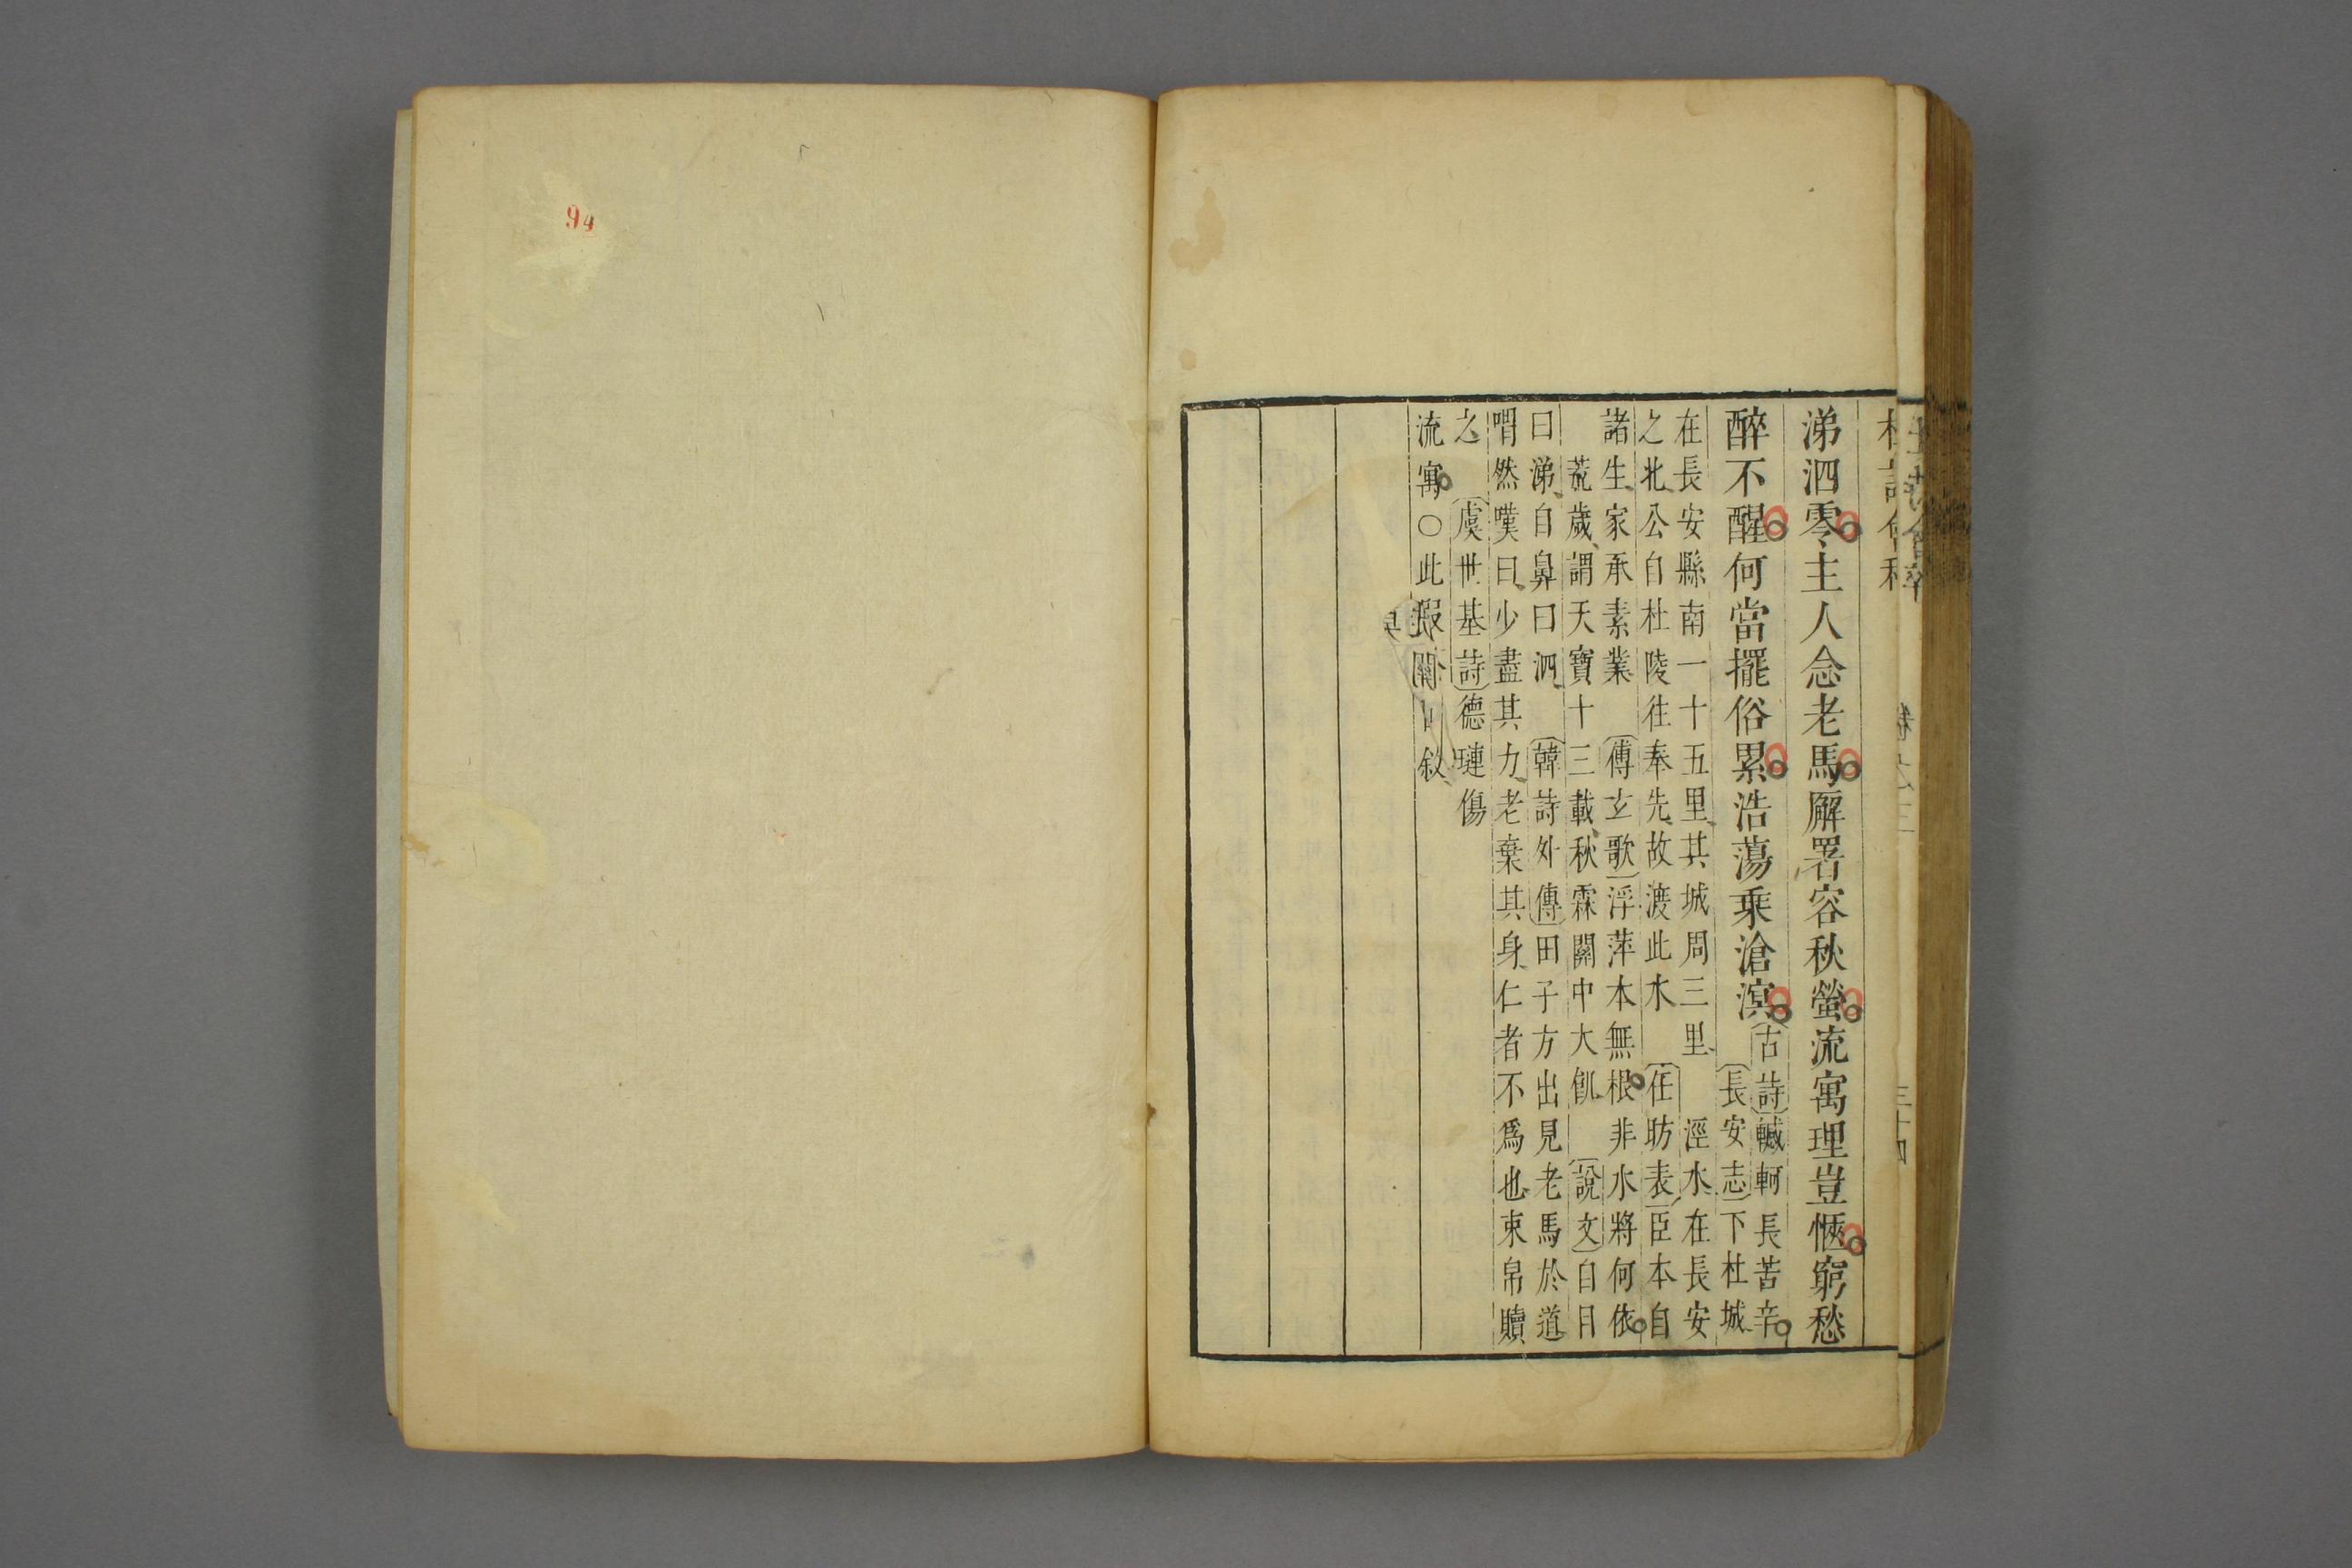 涕泗零主人念老馬廨署容秋螢流寓理豈愜窮愁
醉不醒何當擺俗累浩蕩乘滄溟
古詩轗軻長苦辛
長安志下杜城
在長安縣南一十五里其城周三里　涇水在長安
之北公自杜陵往奉先故渡此水　任昉表臣本自
諸生家承素業　傅玄歌浮萍本無根非水將何依
荒歲謂天寶十三載秋霖關中大飢　說文自目
曰涕自鼻曰泗　韓詩外傳田子方出見老馬於道
喟然嘆曰少盡其力老棄其身仁者不爲也束帛贖
之　虞世基詩德璉傷
流寓○此叙
卷之三
三十四
94